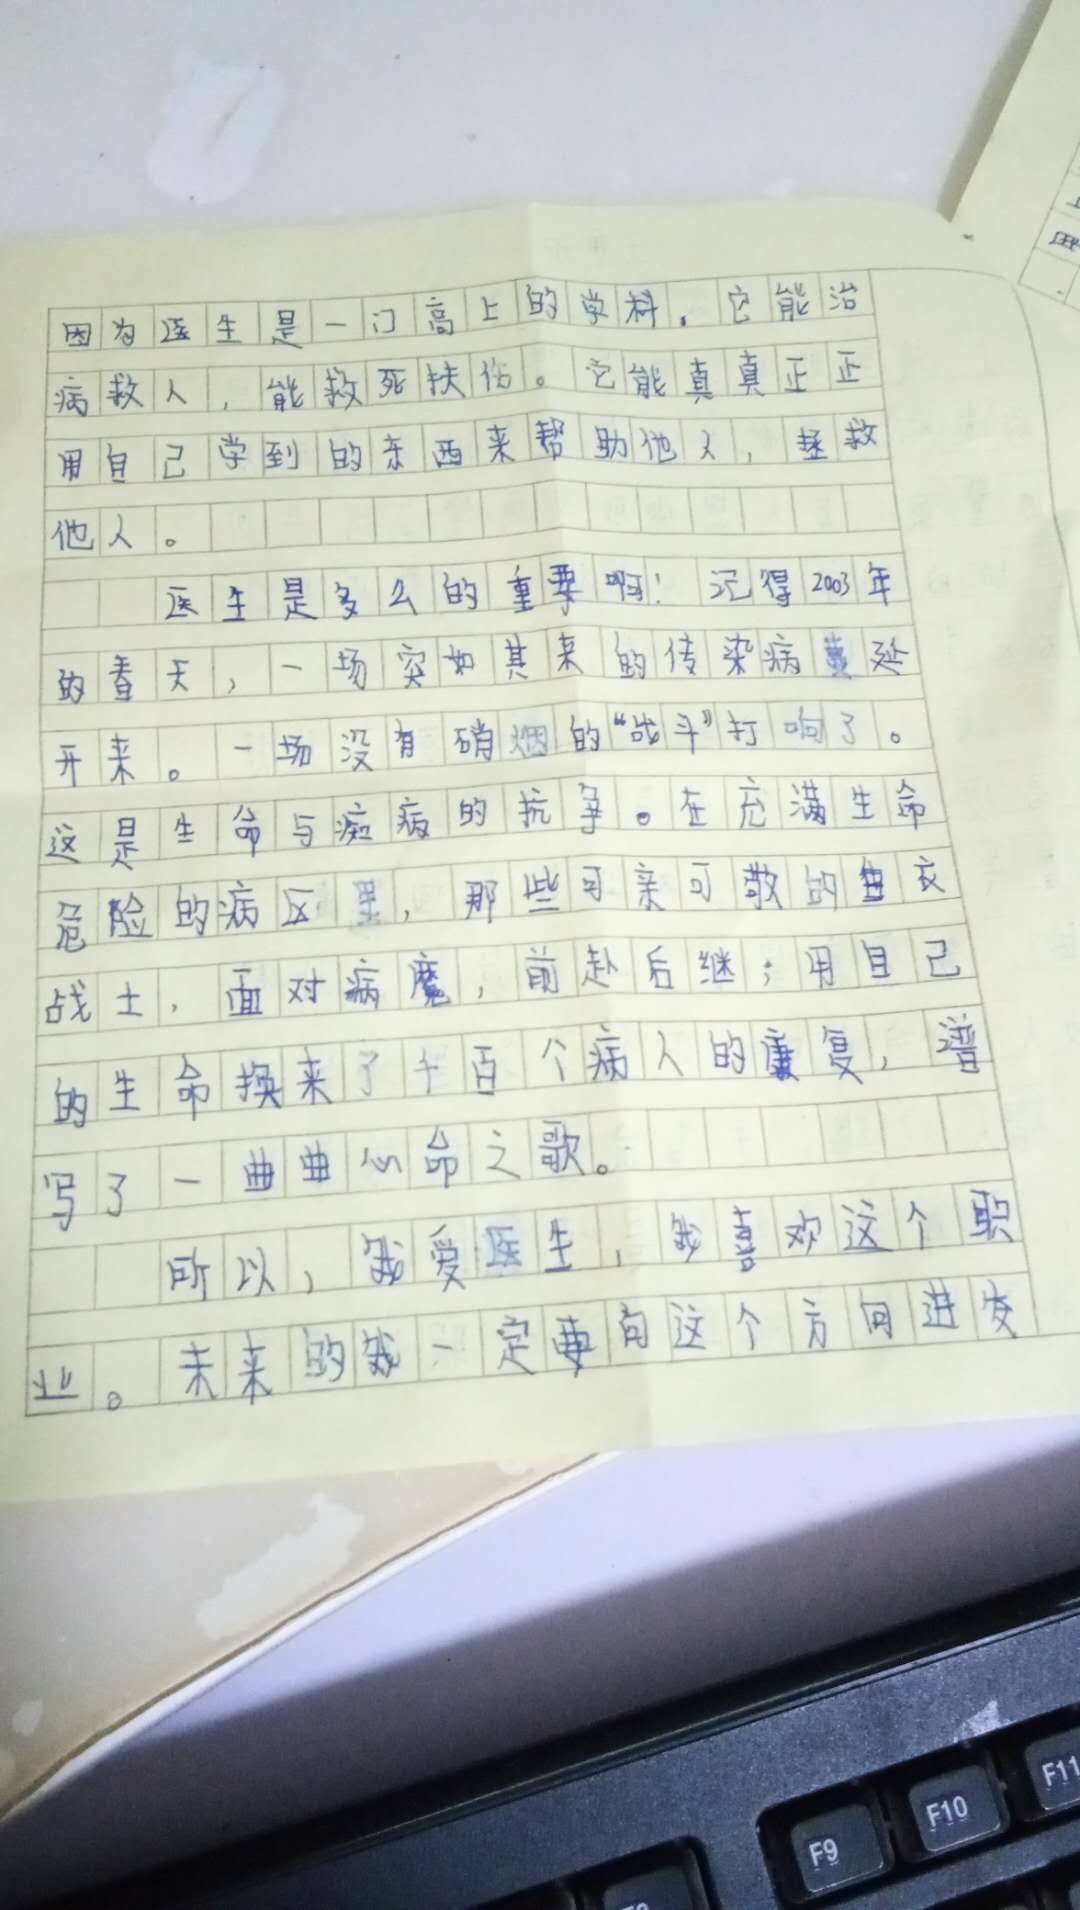 因为医生是一门高上的学科。它能治
病救人，能救死扶伤。它能真真正正
用自己学到的东西来帮助他人，拯救
他人。
医生是多么的重要啊！记得2003年
的春天，一场突如其来的传染病蔓延
开来。一场没有硝烟的“战斗”打响了。
这是生命与病的抗争。在充满生命
危险的病区里，那些可亲可敬的衣
战士，面对病魔，前赴后继；用自己
的生命换来了千百个病人的康复，谱
写了一曲曲心命之歌。
所以，我爱医生，我喜欢这个职
业。未来的我一定要向这个方向进发
F9
F10
F11